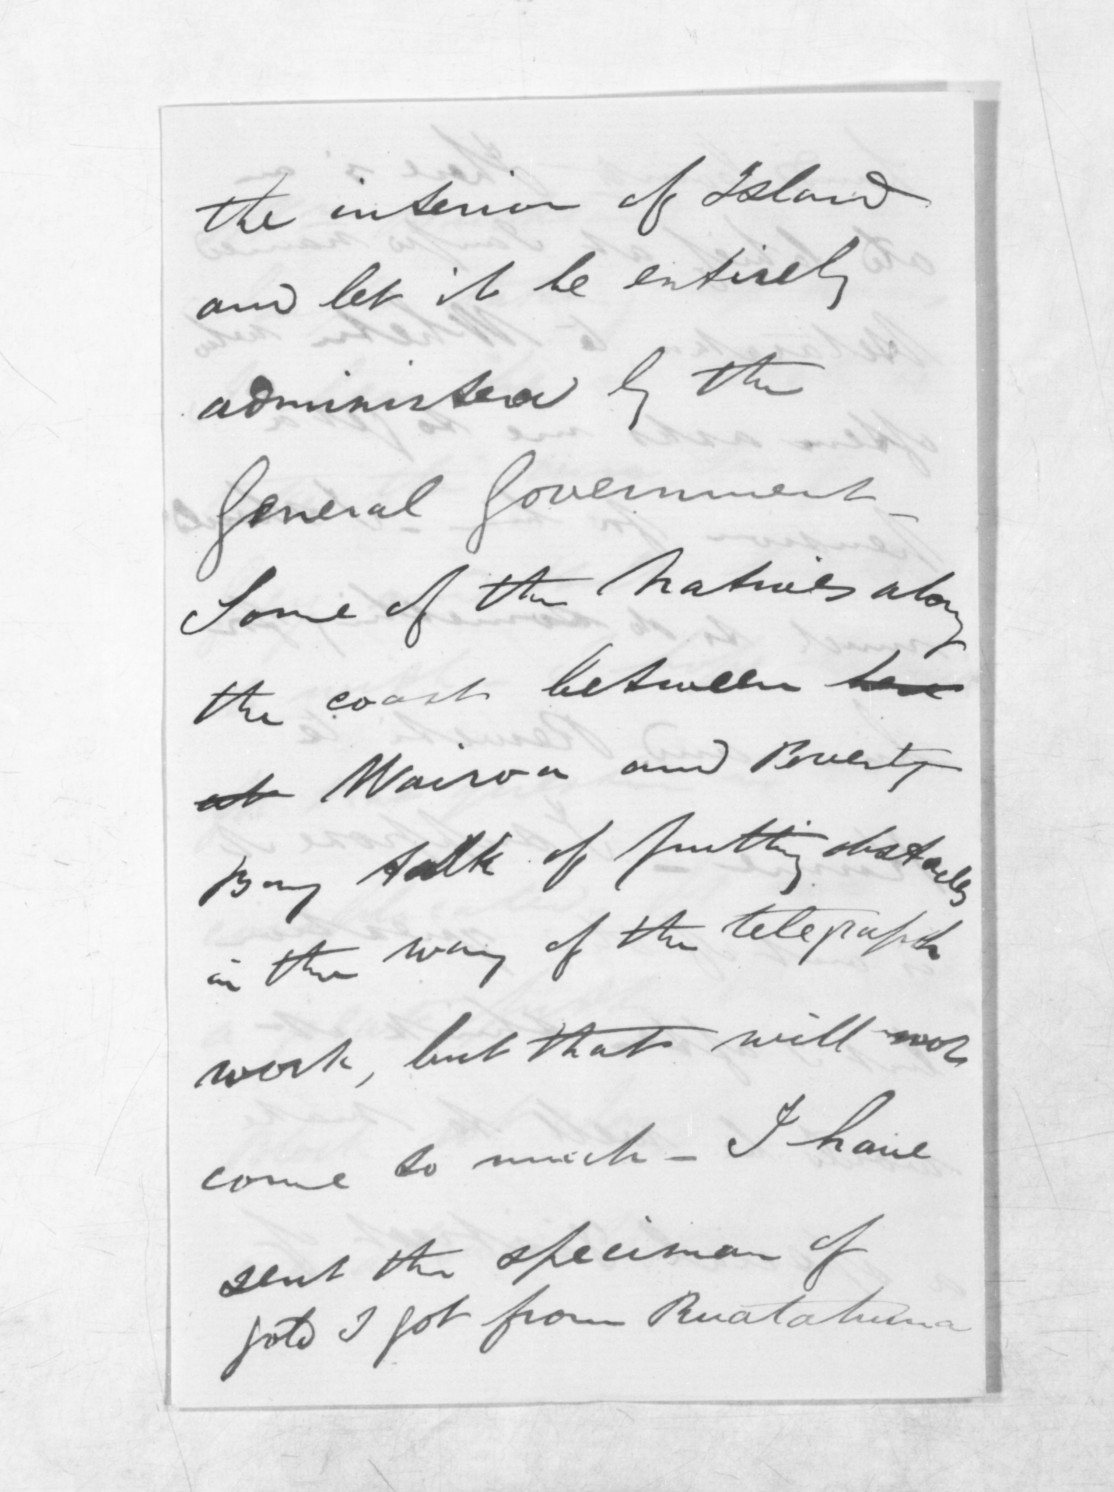 the interior of Island
and let it be entirely
administered by the
General Government _
Some of the Natives along
the coast between here
at Wairoa and Poverty
Bay talk of putting obstacles
in the way of the telegraph
work, but that will not
come to much _ I have
sent the speciman of
gold I got from Ruatahuna